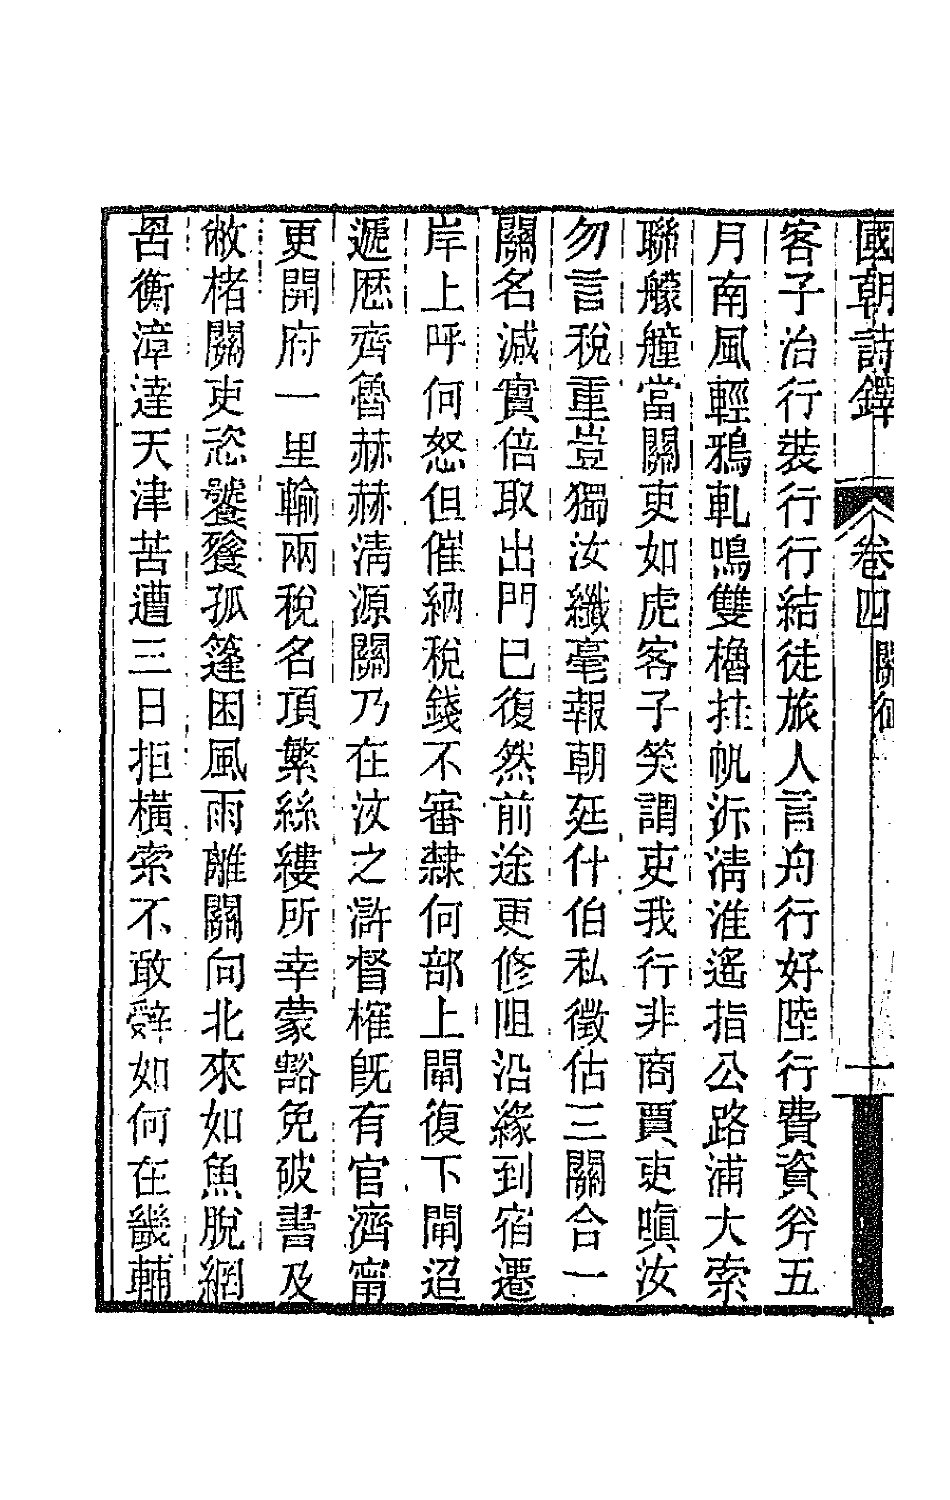 國朝詩鐸 卷四 關征 一
客子治行裝行行結徒旅人言舟行好陸行費資斧五
月南風輕鴉軋鳴雙櫓挂帆泝清淮遙指公路浦大索
聯艨艟當關吏如虎客子笑謂吏我行非商賈吏嗔汝
勿言稅重豈獨汝纖毫報朝廷什伯私徵估三關合一
關名減實倍取出門已復然前途更修阻沿緣到宿遷
岸上呼何怒但催納稅錢不審隸何部上閘復下閘迢
遞歷齊魯赫赫淸源關乃在汶之滸督榷旣有官濟甯
更開府一里輸兩稅名項繁絲縷所幸蒙豁免破書及
敝楮關吏恣饕餮孤篷困風雨離關向北來如魚脫網
罟衡漳達天津苦遭三日拒橫索不敢辭如何在畿輔